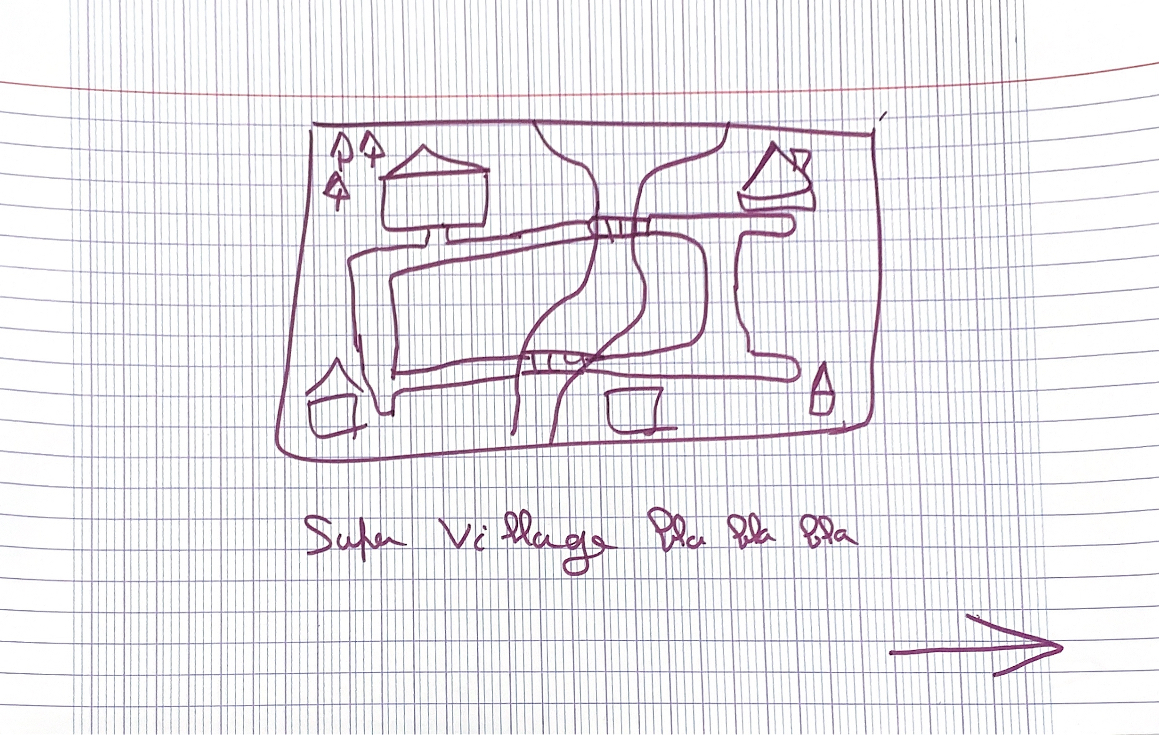 Super Village bla bla bla